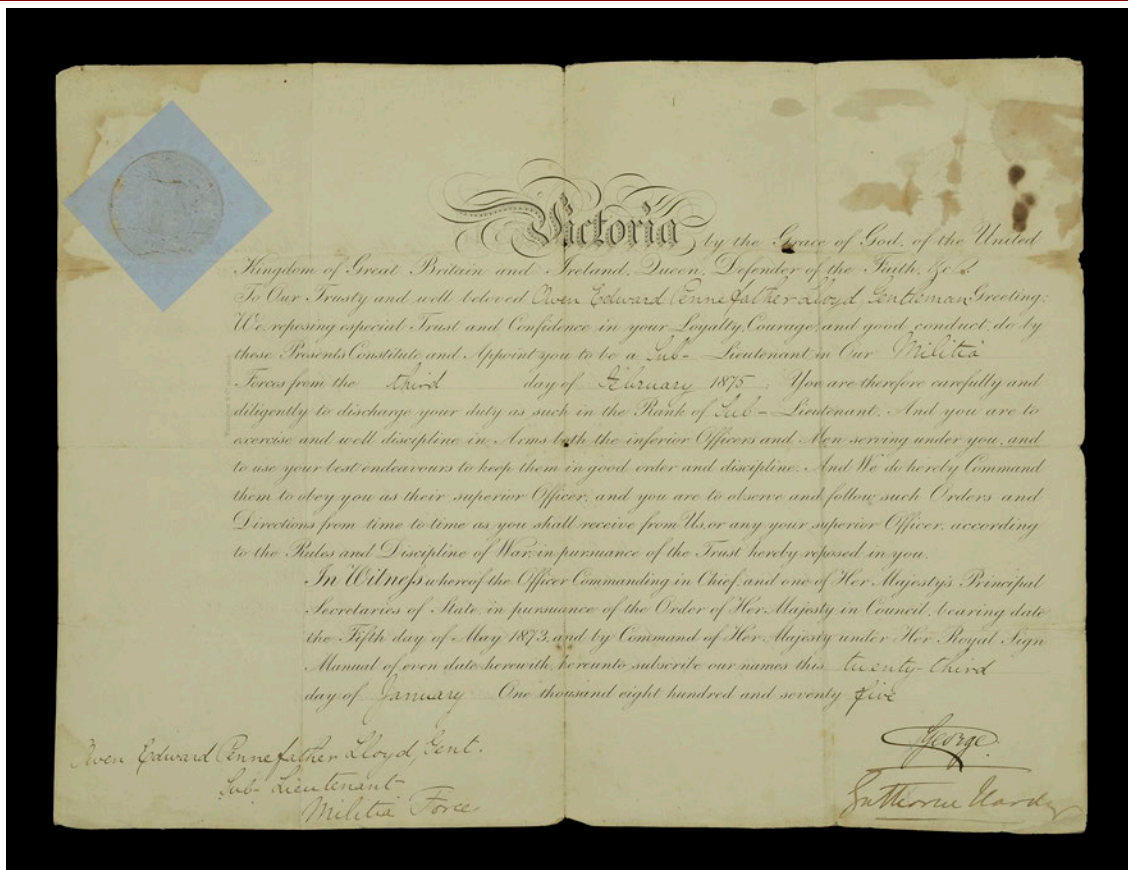 Victoria by the Grace of God, of the United
Kingdom of Great Britain and Ireland, Queen, Defender of the Faith, &c.
To Our Trusty and well beloved Owen Edward Pennefather Lloyd, Gentleman Greeting:
We, reposing especial Trust and Confidence in your Loyalty, Courage, and good conduct, do by
these Presents Constitute and Appoint you to be a Sub- Lieutenant in Our Militia
Forces from the third day of February 1875. You are therefore carefully and
diligently to discharge your duty as such in the Rank of Sub- Lieutenant. And you are to
exercise and well discipline in Arms both the inferior Officers and Men serving under you, and
to use your best endeavours to keep them in good order and discipline. And We do hereby Command
them to obey you as their superior Officer, and you are to observe and follow such Orders and
Directions from time to time as you shall receive from Us, or any your superior Officer, according
to the Rules and Discipline of War, in pursuance of the Trust hereby reposed in you.
In Witness whereof the Officer Commanding in Chief, and one of Her Majesty's Principal
Secretaries of State, in pursuance of the Order of Her Majesty in Council, bearing date
the Fifth day of May 1873, and by Command of Her Majesty under Her Royal Sign
Manual of even date herewith, hereunto subscribe our names this twenty-third
day of January One thousand eight hundred and seventy five
George
Gathorne Hardy
Owen Edward Pennefather Lloyd, Gent.
Sub-Lieutenant
Militia Force